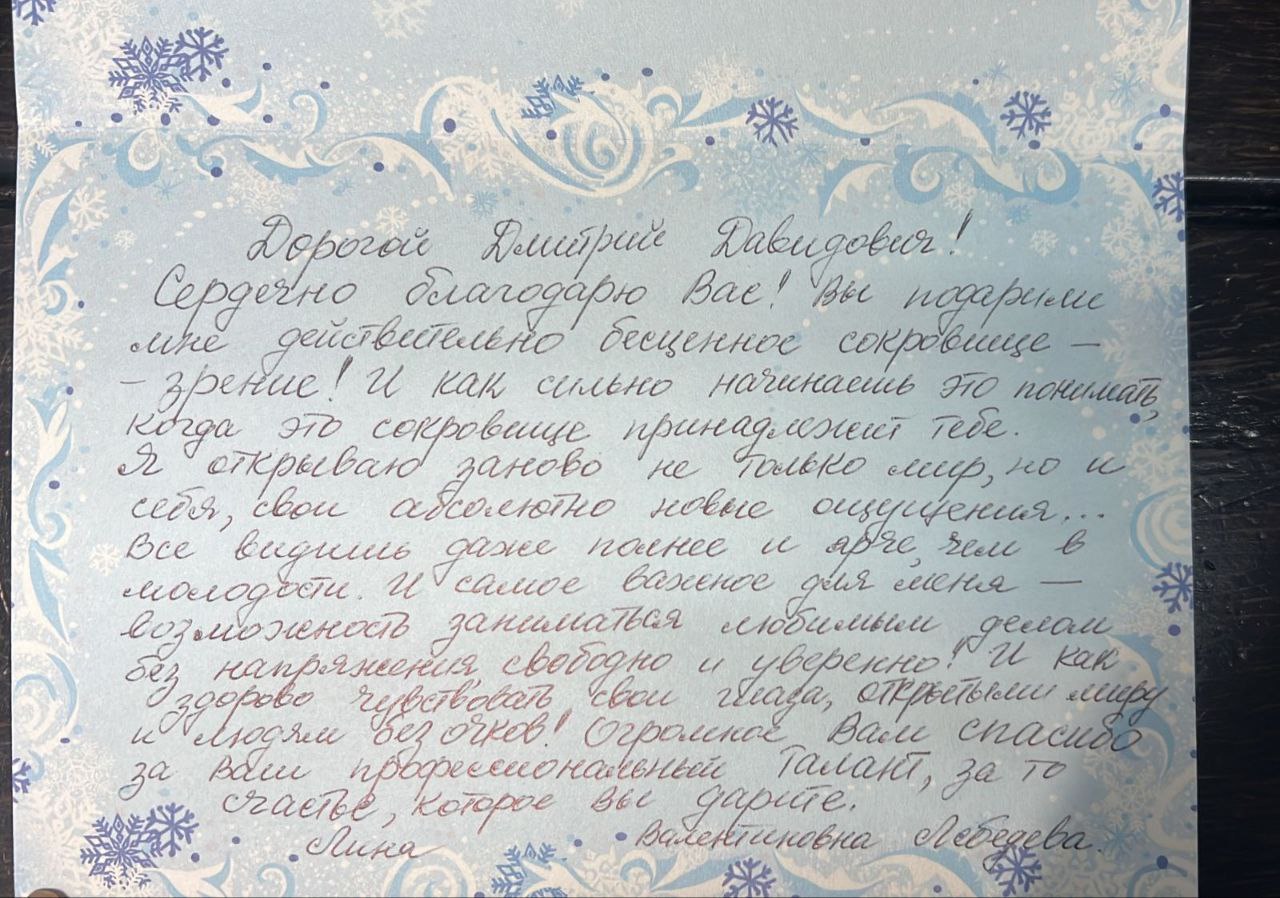 Дорогой Дмитрий Давидович!
Сердечно благодарю Вас! Вы подарили
мне действительно бесценное сокровище –
– зрение! И как сильно начинаешь это понимать,
когда это сокровище принадлежит тебе.
Я открываю заново не только мир, но и
себя, свои абсолютно новые ощущения...
Все видишь даже полнее и ярче, чем в
молодости. И самое важное для меня –
возможность заниматься любимым делом
без напряжения, свободно и уверенно! И как
здорово чувствовать свои глаза, открытыми миру
и людям без очков! Огромное Вам спасибо
за Ваш профессиональный талант, за то
счастье, которое вы дарите.
Лина Валентиновна Лебедева.